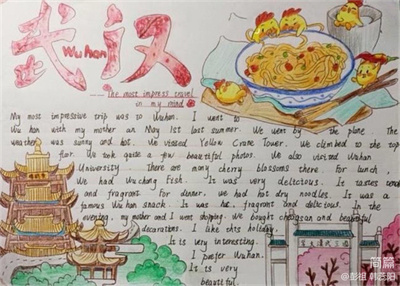 武汉
Wuhan
The most impress travel
in my mind
My most impressive trip was to Wuhan. I went to
Wu han with my mother on May 1st last summer. We went by the plane. The
weather was sunny and hot. We visited Yellow Crane Tower. We climbed to the top
floor. We took quite a few beautiful photos. We also visited Wuhan
University. There are many cherry blossoms there. For lunch,
we had Wuchang Fish. It was very delicious. It tastes tender
and fragrant. For dinner, we had hot dry noodles. It was a
famous Wuhan snack. It was hot, fragrant and delicious. In the
evening, my mother and I went shopping. We bought and beautiful
decorations. I like this holiday.
It is very interesting.
I prefer Wuhan.
It is very
beautiful.
简篇
@彭祖 韩芸阳